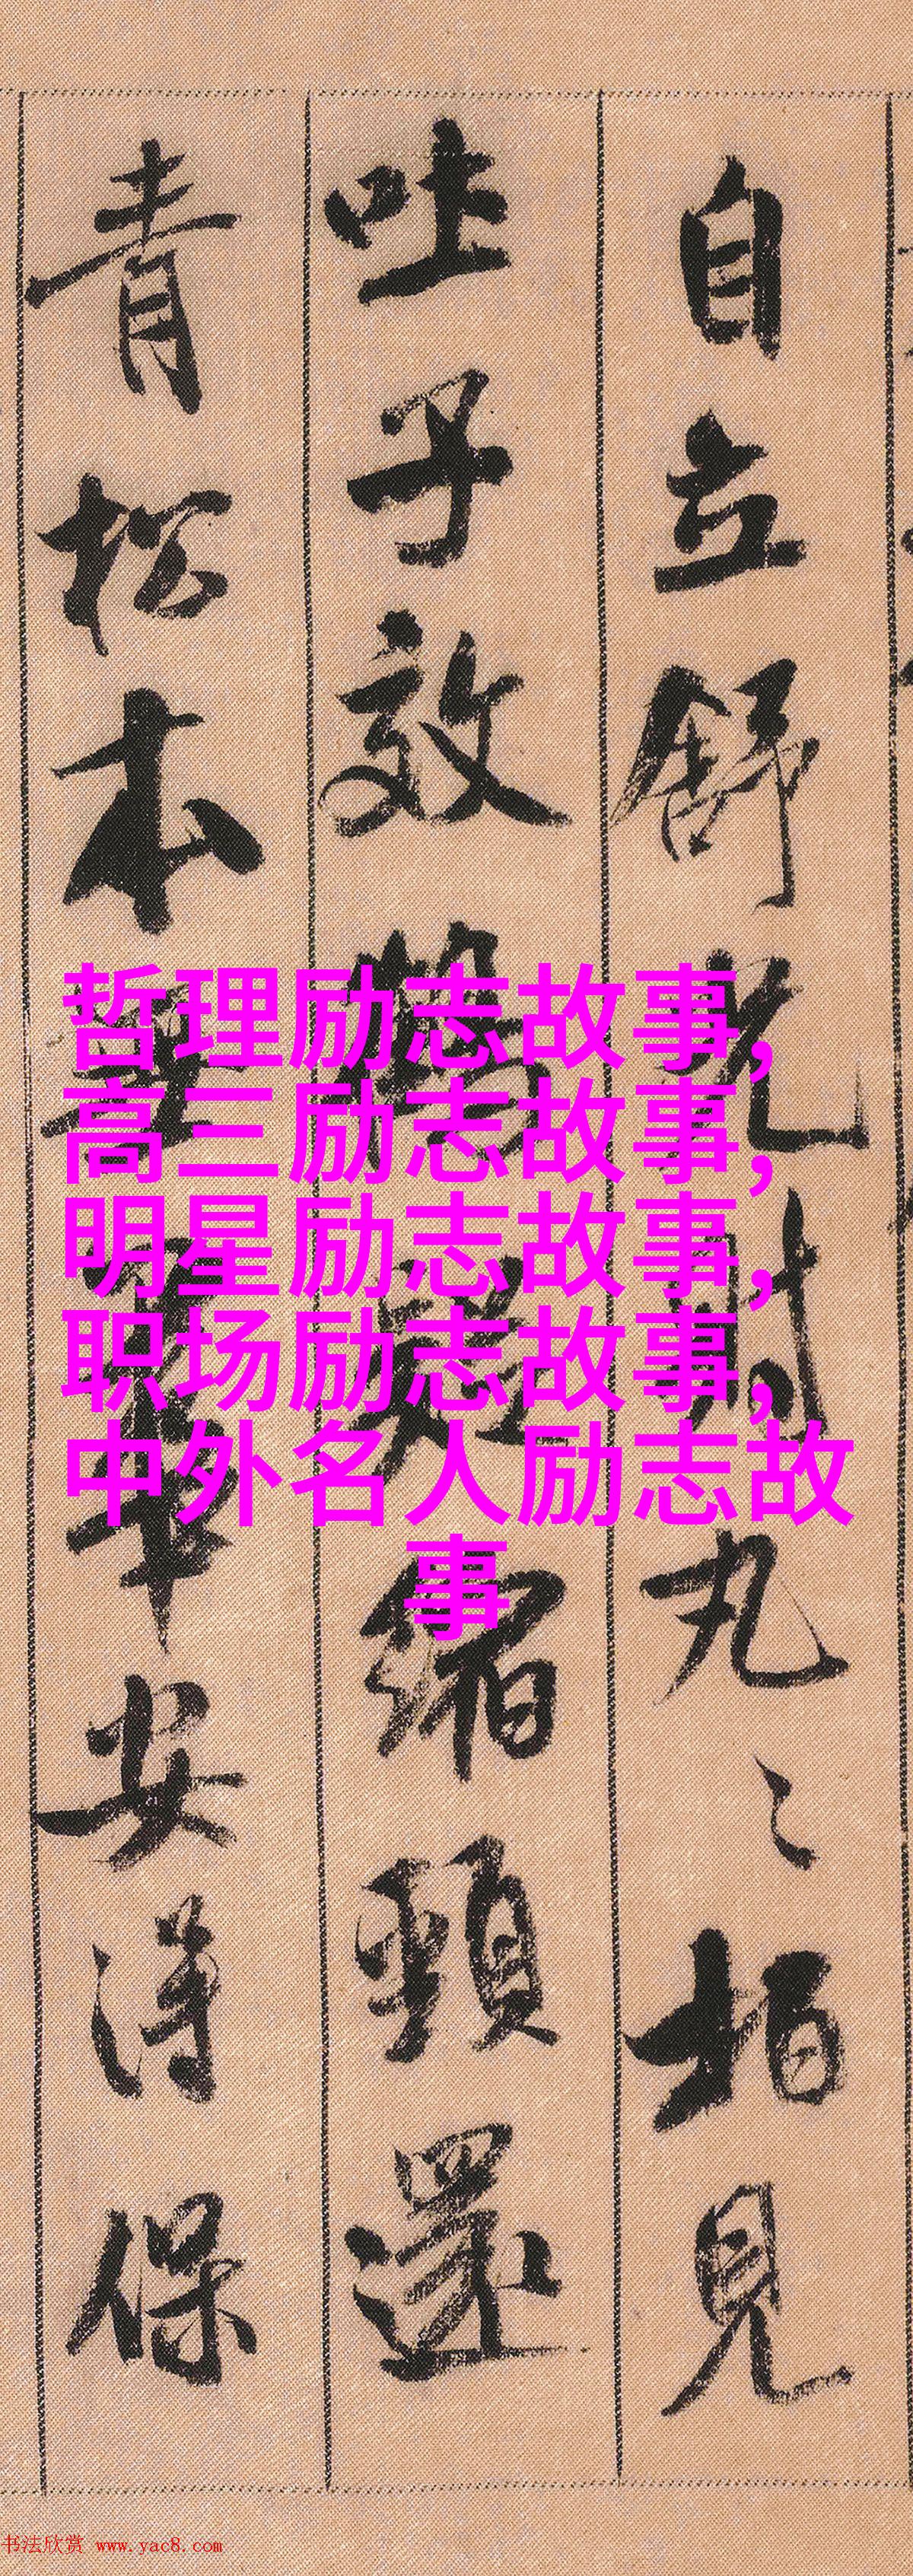 自立舒光射丸〻柏見
吐子效鶴疑縮頸還
青松本無華安得保
哲理励志故事,
高三励志故事,
明星励志故事,
职场励志故事,
中外名人励志故
事
书法欣赏 www.yac8.com